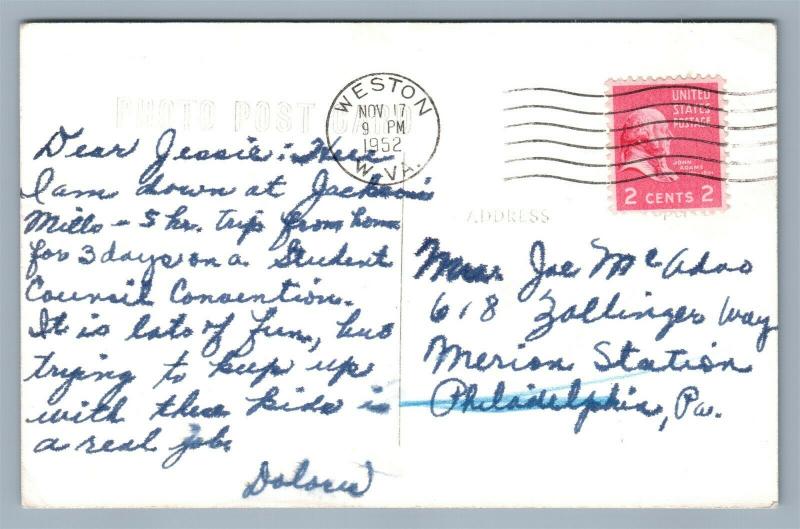 PHOTO POST CARD
WESTON
NOV 17
9 PM
1952
W. VA.
UNITED
STATES
POSTAGE
JOHN
ADAMS
2 CENTS 2
ADDRESS
Dear Jessie: Here
I am down at Jackson's
Mills - 5 hr. trip from home
for 3 days on a Student
Council Convention.
It is lots of fun, but
trying to keep up
with these kids is
a real job.
Dolores
Mrs. Joe McAdoo
618 Zollinger Way
Merion Station
Philadelphia, Pa.